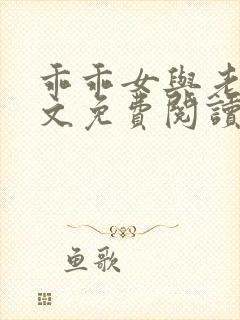 乖乖女與老
文免費閱讀
鱼歌